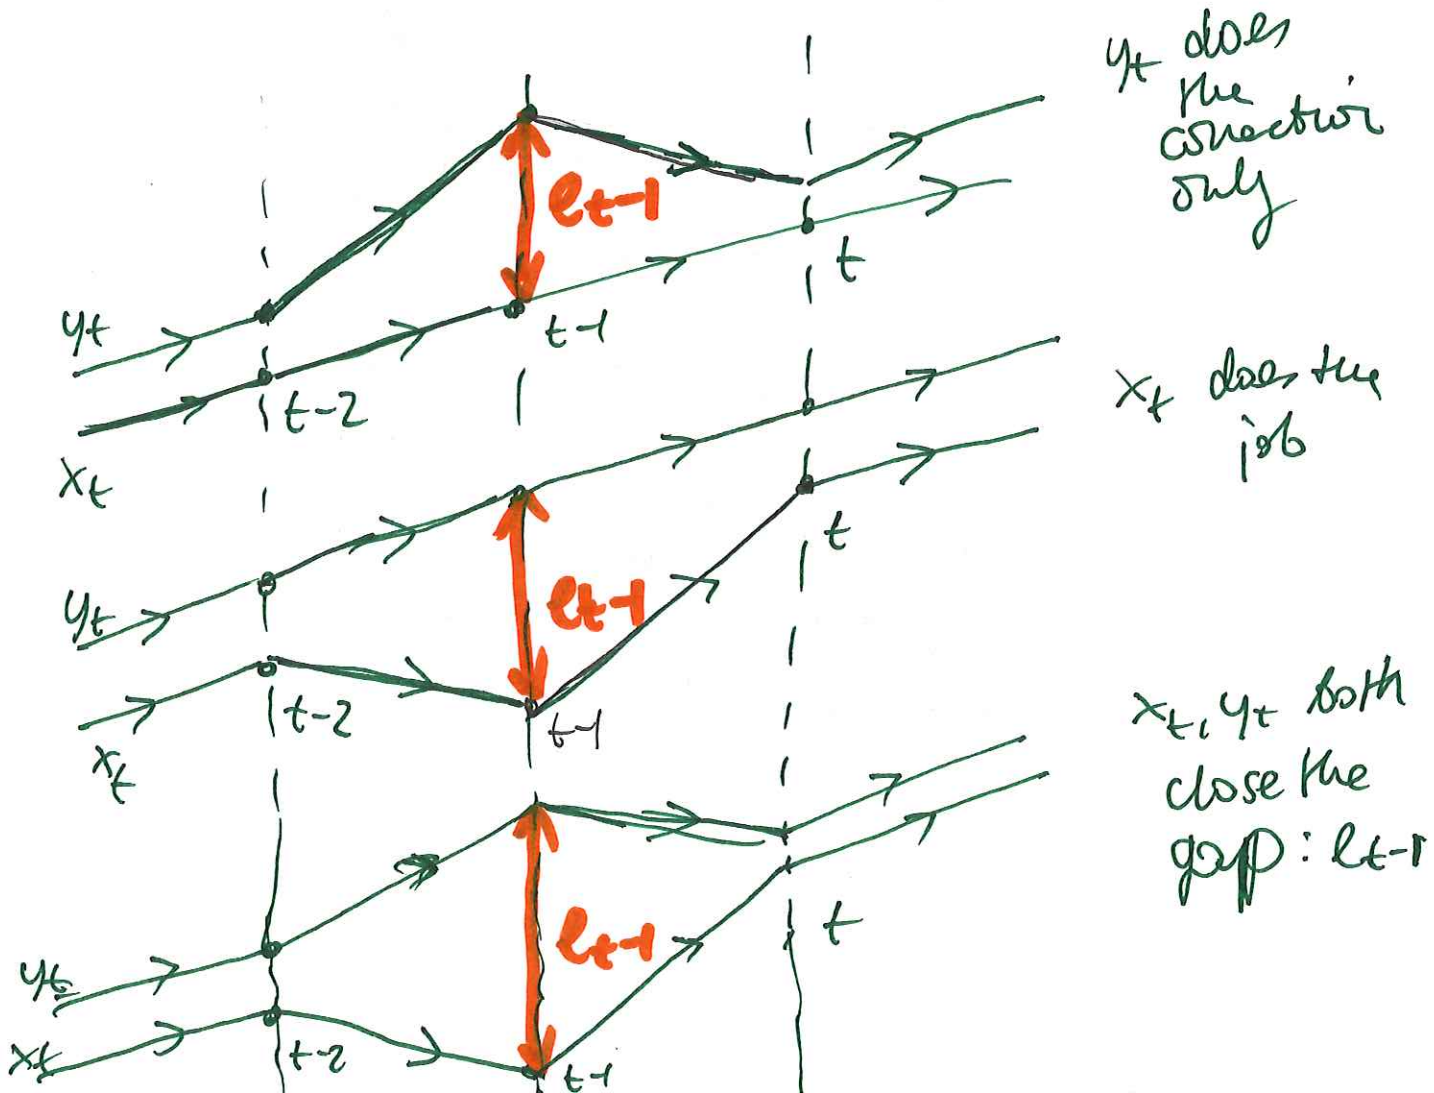 yt does
the
correction
only
et-1
t
yt
t-1
t-2
xt
xt does the
job
t
et-1
yt
t-2
t-1
xt
xt, yt both
close the
gap: et-1
et-1
t
yt
xt
t-2
t-1